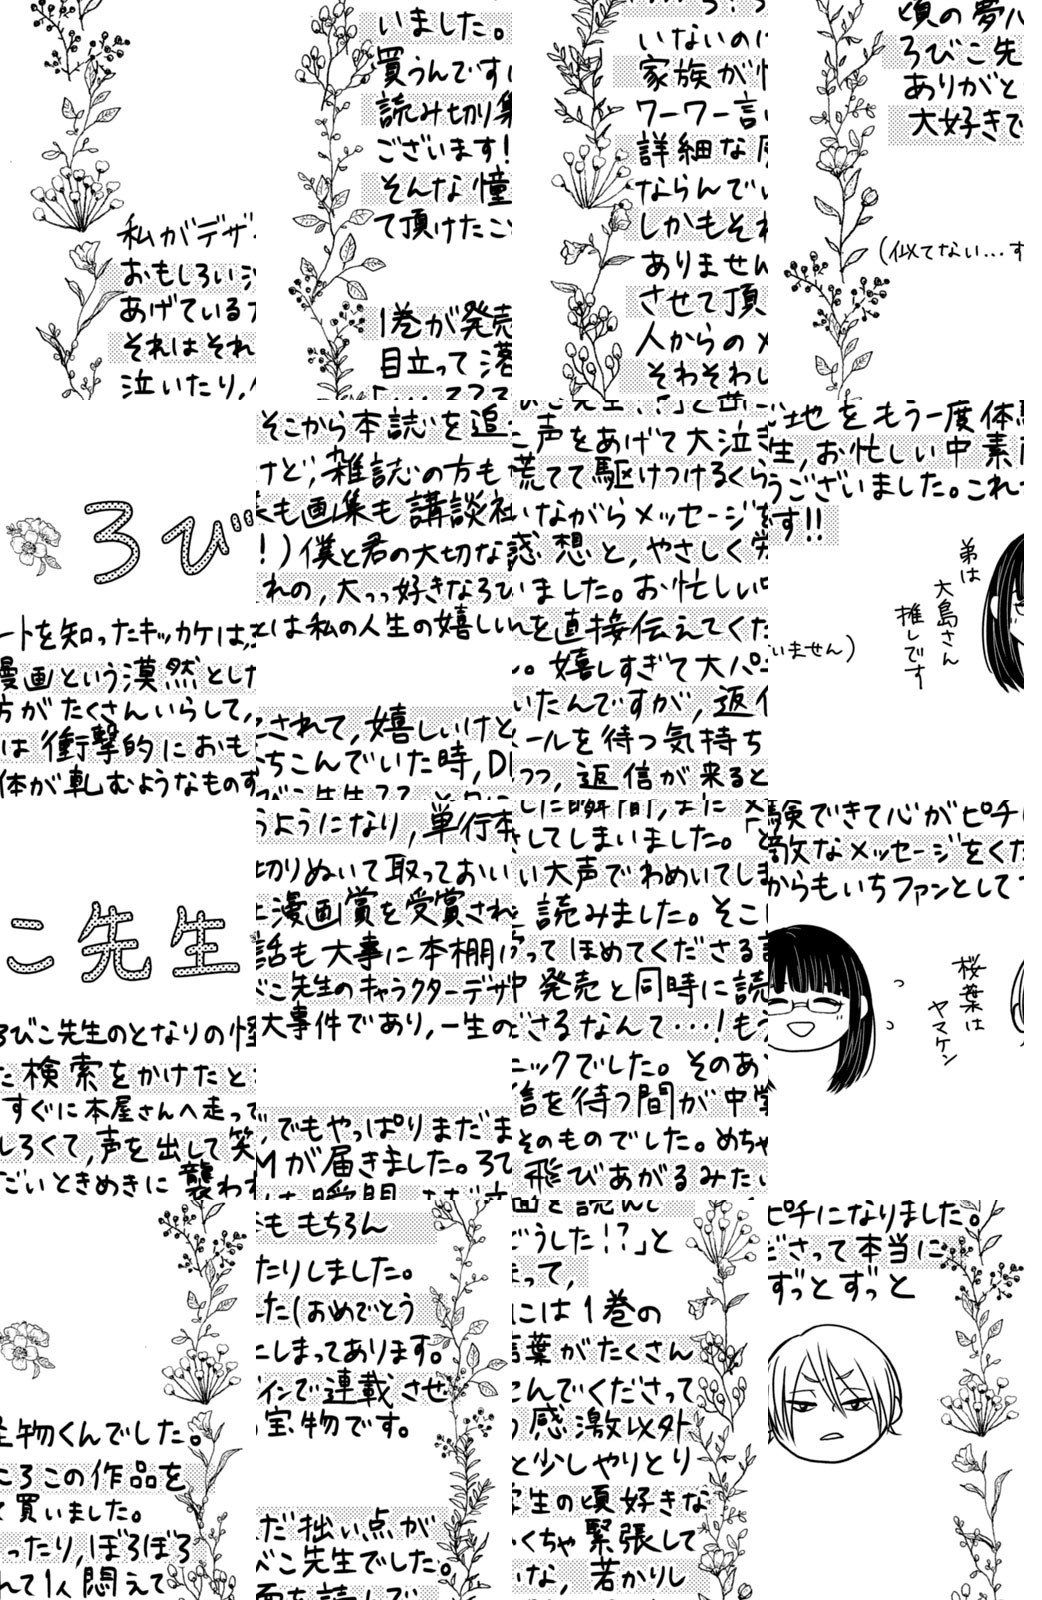 ろびこ先生
私がデザートを知ったキッカケは、ろびこ先生のとなりの怪物くんでした。
おもしろい漫画という漠然とした検索をかけたところこの作品を
あげている方がたくさんいらして、すぐに本屋さんへ走って買いました。
それはそれは衝撃的におもしろくて、声を出して笑ったり、ぼろぼろ
泣いたり、体が軋むようなものすごいときめきに襲われて1人悶えて
いました。そこから本誌を追うようになり、単行本ももちろん
買うんですけど、雑誌の方も切りぬいて取っておいたりしました。
読み切り集も画集も講談社漫画賞を受賞された(おめでとう
ございます!!)僕と君の大切な話も大事に本棚にしまってあります。
そんな憧れの、大っっ好きなろびこ先生のキャラクターデザインで連載させ
て頂けたことは私の人生の嬉しい大事件であり、一生の宝物です。
1巻が発売されて、嬉しいけど、でもやっぱりまだまだ拙い点が
目立って落ちこんでいた時、DMが届きました。ろびこ先生でした。
「…ろびこ先生!?」と
した瞬間、まだ文面を読んで
いないのに声をあげて大泣きしてしまいました。「どうした!?」と
家族が慌てて駆けつけるくらい大声でわめいてしまって、
ワーワー言いながらメッセージを読みました。そこには1巻の
詳細な感想と、やさしく労ってほめてくださる言葉がたくさん
ならんでいました。お忙しい中発売と同時に読んでくださって
しかもそれを直接伝えてくださるなんて…!もう感激以外
ありません。嬉しすぎて大パニックでした。そのあと少しやりとり
させて頂いたんですが、返信を待つ間が中学生の頃好きな
人からのメールを待つ気持ちそのものでした。めちゃくちゃ緊張して
そわそわしつつ、返信が来ると飛びあがるみたいな、若かりし
頃の夢心地をもう一度体験できて心がピチピチになりました。
ろびこ先生、お忙しい中素敵なメッセージをくださって本当に
ありがとうございました。これからもいちファンとしてずっとずっと
大好きです!!
弟は
大島さん
推しです
桜葉は
ヤマケン
(似てない…すいません)